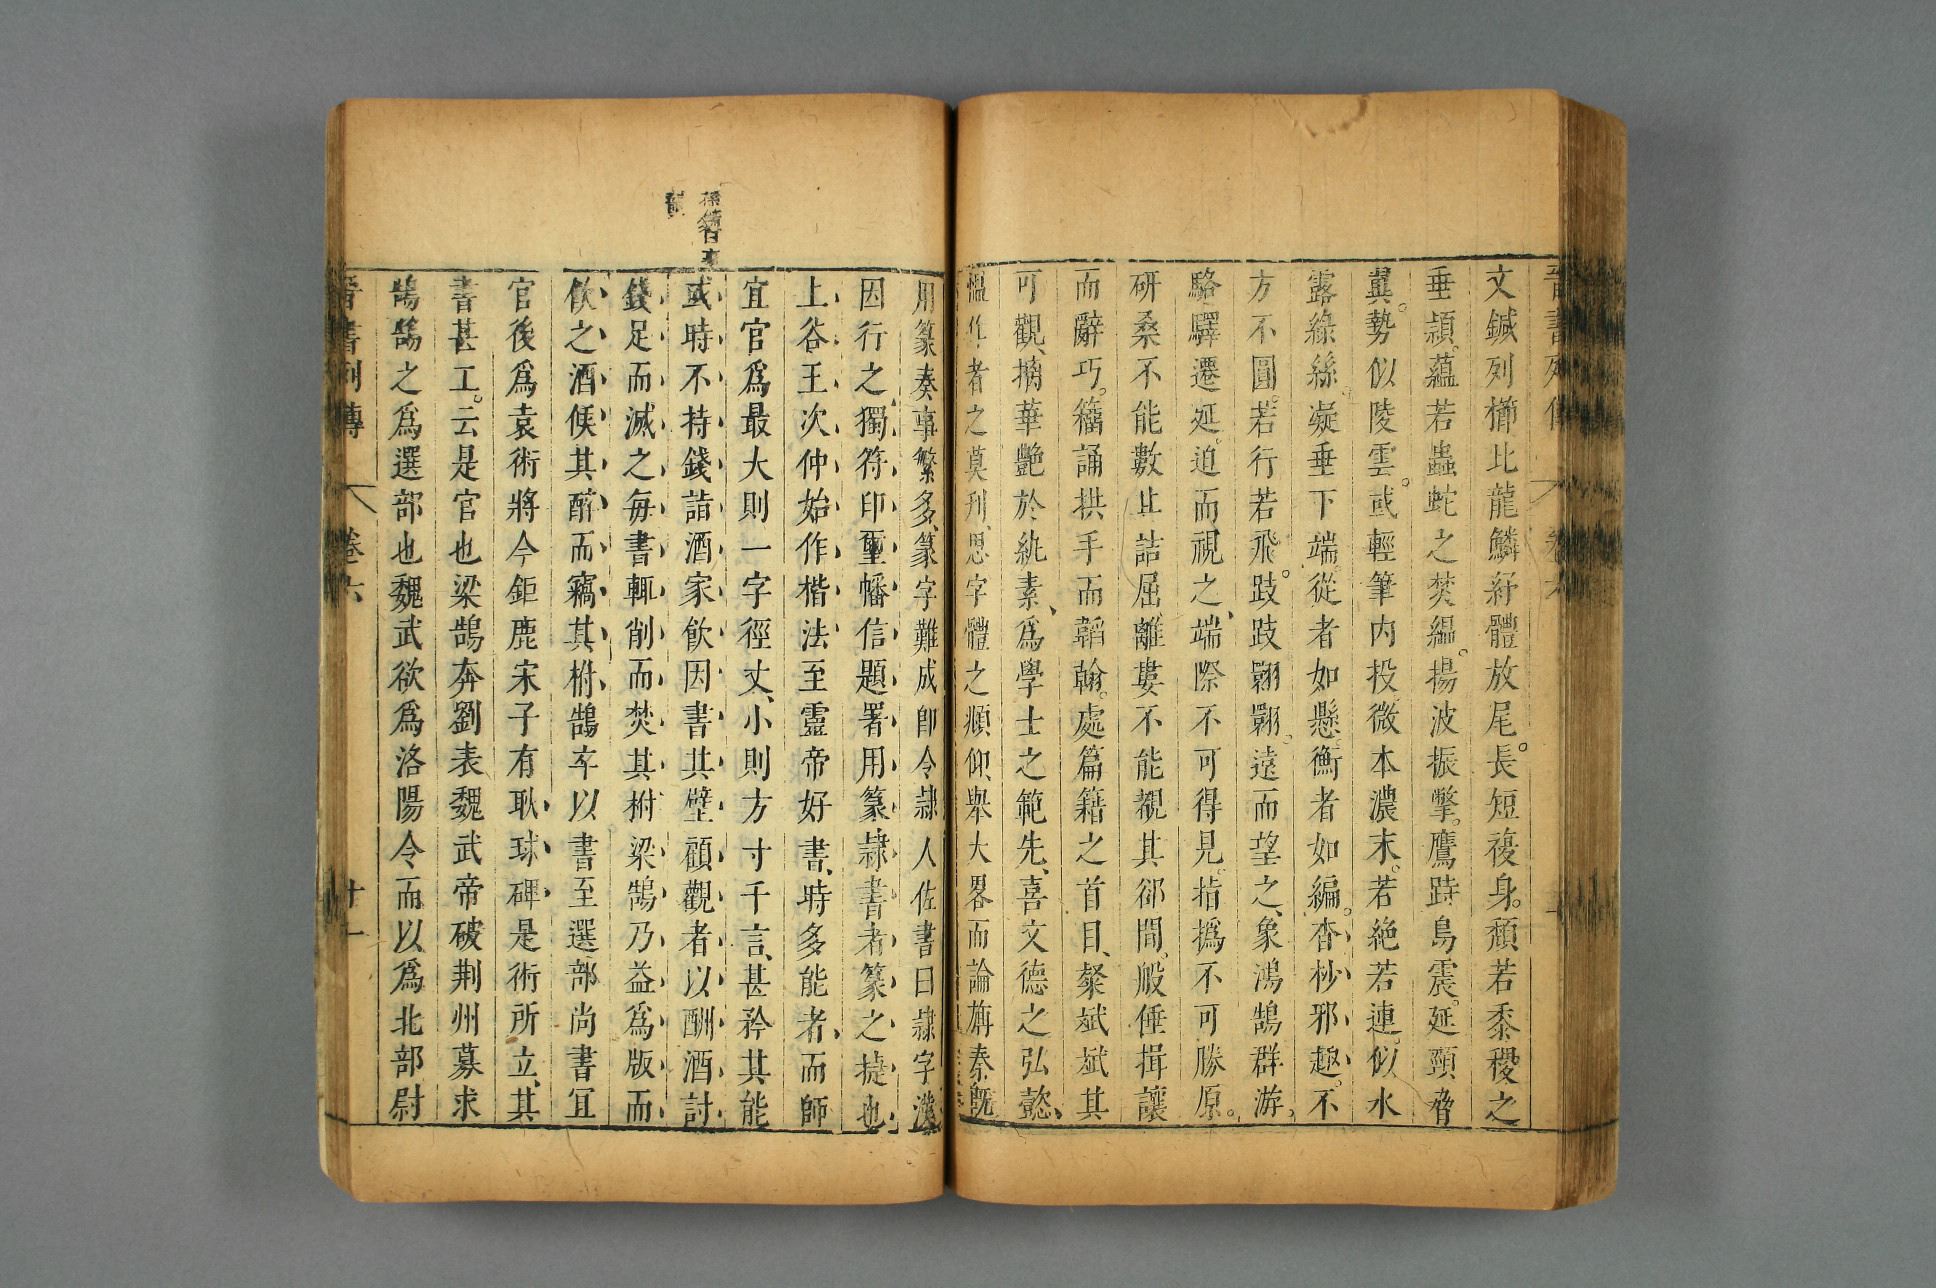 文鍼列櫛比龍鱗紓體放尾長短複身頹若黍稷之
垂穎蘊若蟲蛇之焚緼揚波振擎鷹跱鳥震延頸脅
翼勢似陵雲或輕筆内投微本濃末若絶若連似水
露綠絲凝垂下端從者如懸衡者如編杳杪邪趣不
方不圓若行若飛跂跂翾翾遠而望之象鴻鵠群游
駱驛遷延迫而視之端際不可得見指撝不可勝原
研桑不能數其詰屈離婁不能覩其郤間般倕揖讓
而辭巧籀誦拱手而韜翰處篇籍之首目粲斌斌其
可觀摛華艷於紈素爲學士之範先喜文德之弘懿
愠作者之莫刋思字體之頫仰舉大畧而論旃秦旣
用篆奏事繁多篆字難成即令隷人佐書曰隷字漢
因行之獨符印璽幡信題署用篆隷書者篆之捷也
上谷王次仲始作楷法至靈帝好書時多能者而師
宜官爲最大則一字徑丈小則方寸千言甚矜其能
或時不持錢詣酒家飮因書其壁顧觀者以酬酒討
錢足而滅之每書輒削而焚其柎梁鵠乃益爲版而
飮之酒候其醉而竊其柎鵠卒以書至選部尚書宜
官後爲袁術將今鉅鹿宋子有耿球碑是術所立其
書甚工云是官也梁鵠奔劉表魏武帝破荆州募求
鵠鵠之爲選部也魏武欲爲洛陽令而以爲北部尉
晋書列傳 卷六 廿一